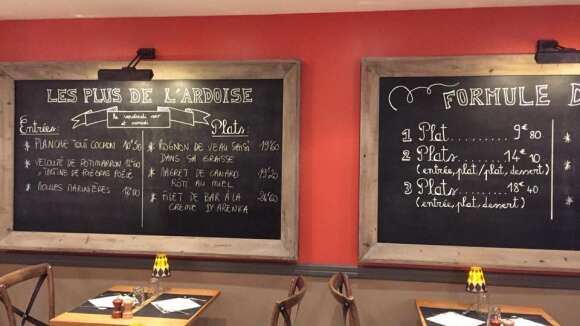 LES PLUS DE L'ARDOISE
le vendredi soir
et samedi
Entrées:
* PLANCHE TOUT COCHON 10€50
* VELOUTÉ DE POTIMARRON
TARTINE DE FOIE GRAS POÊLÉ
* MOULES MARINIÈRES
Plats:
* ROGNON DE VEAU SAISI 19€60
DANS SA GRAISSE
* MAGRET DE CANARD 19€20
RÔTI AU MIEL
* FILET DE BAR À LA 24€60
CRÈME D'ARENKA
FORMULE D
1 Plat......... 9€80
2 Plats......... 14€10
(entrée, plat / plat, dessert)
3 Plats......... 18€40
(entrée, plat, dessert)